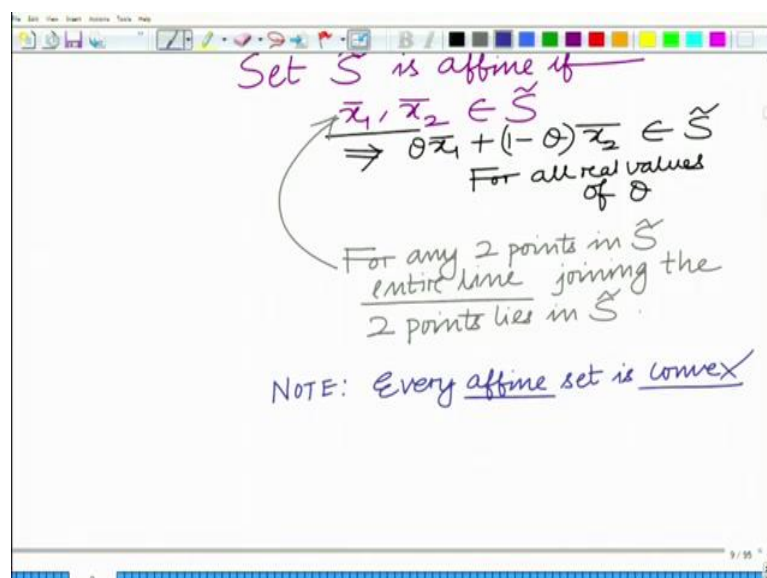 File Edit View Insert Actions Tools Help
Set S̃ is affine if
x̄₁, x̄₂ ∈ S̃
⇒ θx̄₁ + (1-θ)x̄₂ ∈ S̃
For all real values
of θ
For any 2 points in S̃
entire line joining the
2 points lies in S̃.
NOTE: Every affine set is convex
9 / 95